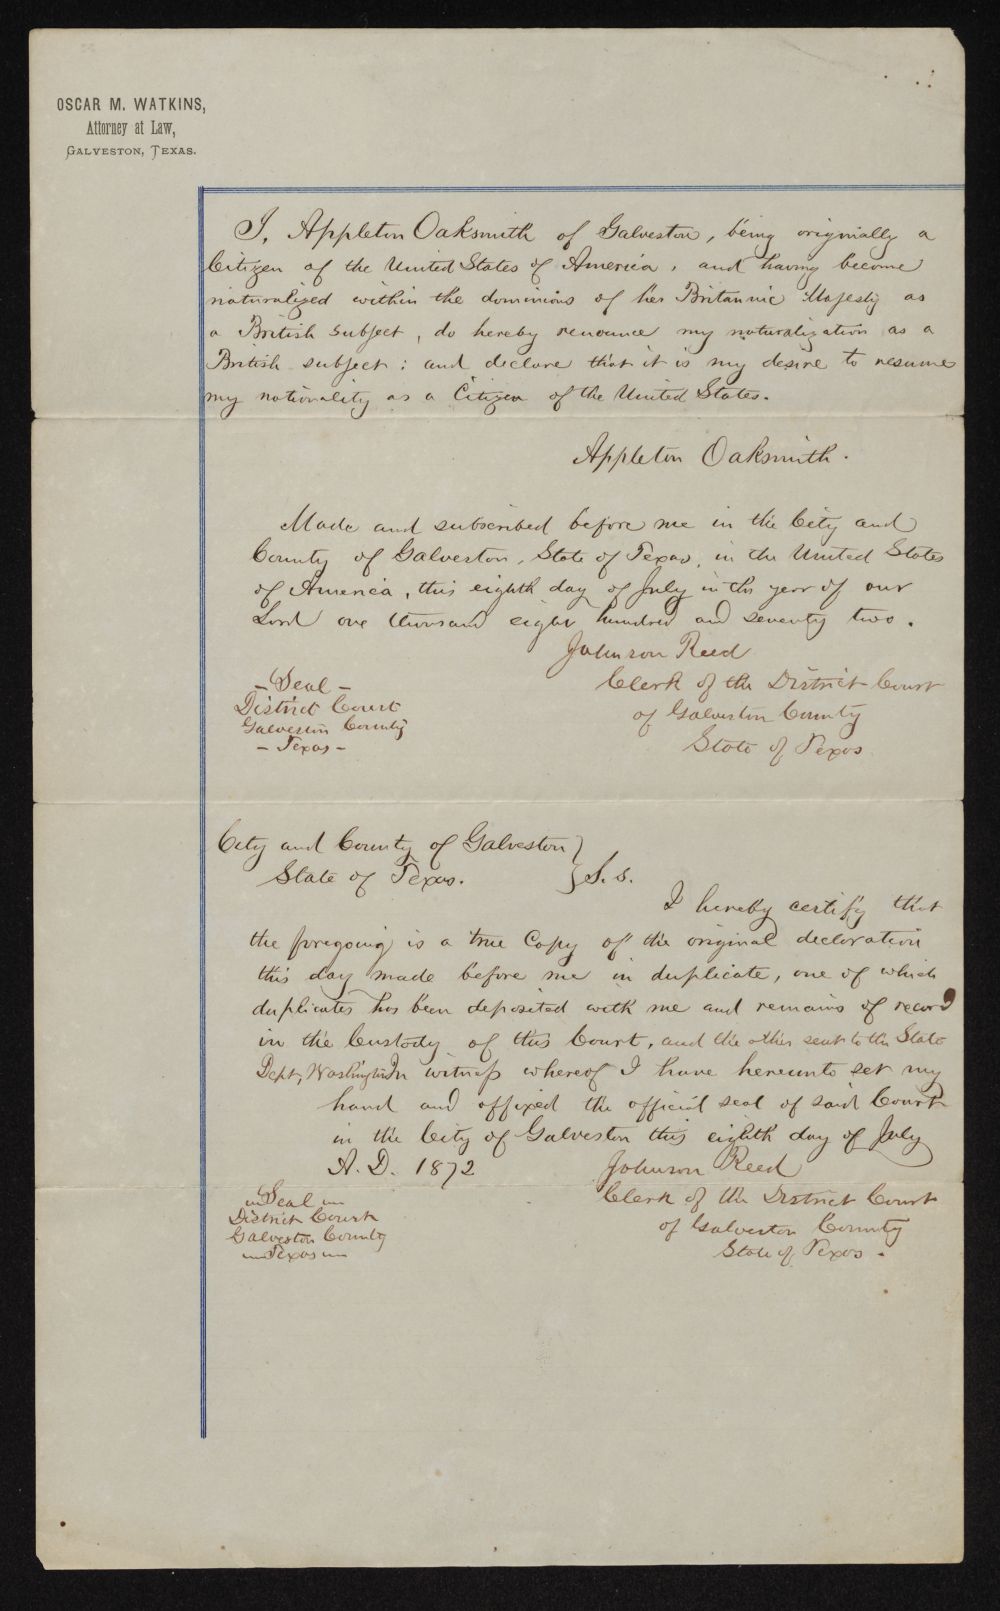 OSCAR M. WATKINS,
Attorney at Law,
GALVESTON, TEXAS.
I, Appleton Oaksmith of Galveston, being originally a
Citizen of the United States of America, and having become
naturalized within the dominions of her Britannic Majesty as
a British subject, do hereby renounce my naturalization as a
British subject; and declare that it is my desire to resume
my nationality as a Citizen of the United States.
Appleton Oaksmith.
Made and subscribed before me in the City and
County of Galveston, State of Texas, in the United States
of America, this eighth day of July in the year of our
Lord one thousand eight hundred and seventy two.
Johnson Reed
Clerk of the District Court
of Galveston County
State of Texas
- Seal -
District Court
Galveston County
- Texas -
City and County of Galveston }
State of Texas. } S.s.
I hereby certify that
the foregoing is a true Copy of the original declaration
this day made before me in duplicate, one of which
duplicates has been deposited with me and remains of record
in the Custody of this Court, and the other sent to the State
Dept, Washington In witness whereof I have hereunto set my
hand and affixed the official seal of said Court
in the City of Galveston this eighth day of July
A. D. 1872
Johnson Reed
Clerk of the District Court
of Galveston County
State of Texas.
- Seal -
District Court
Galveston County
- Texas -